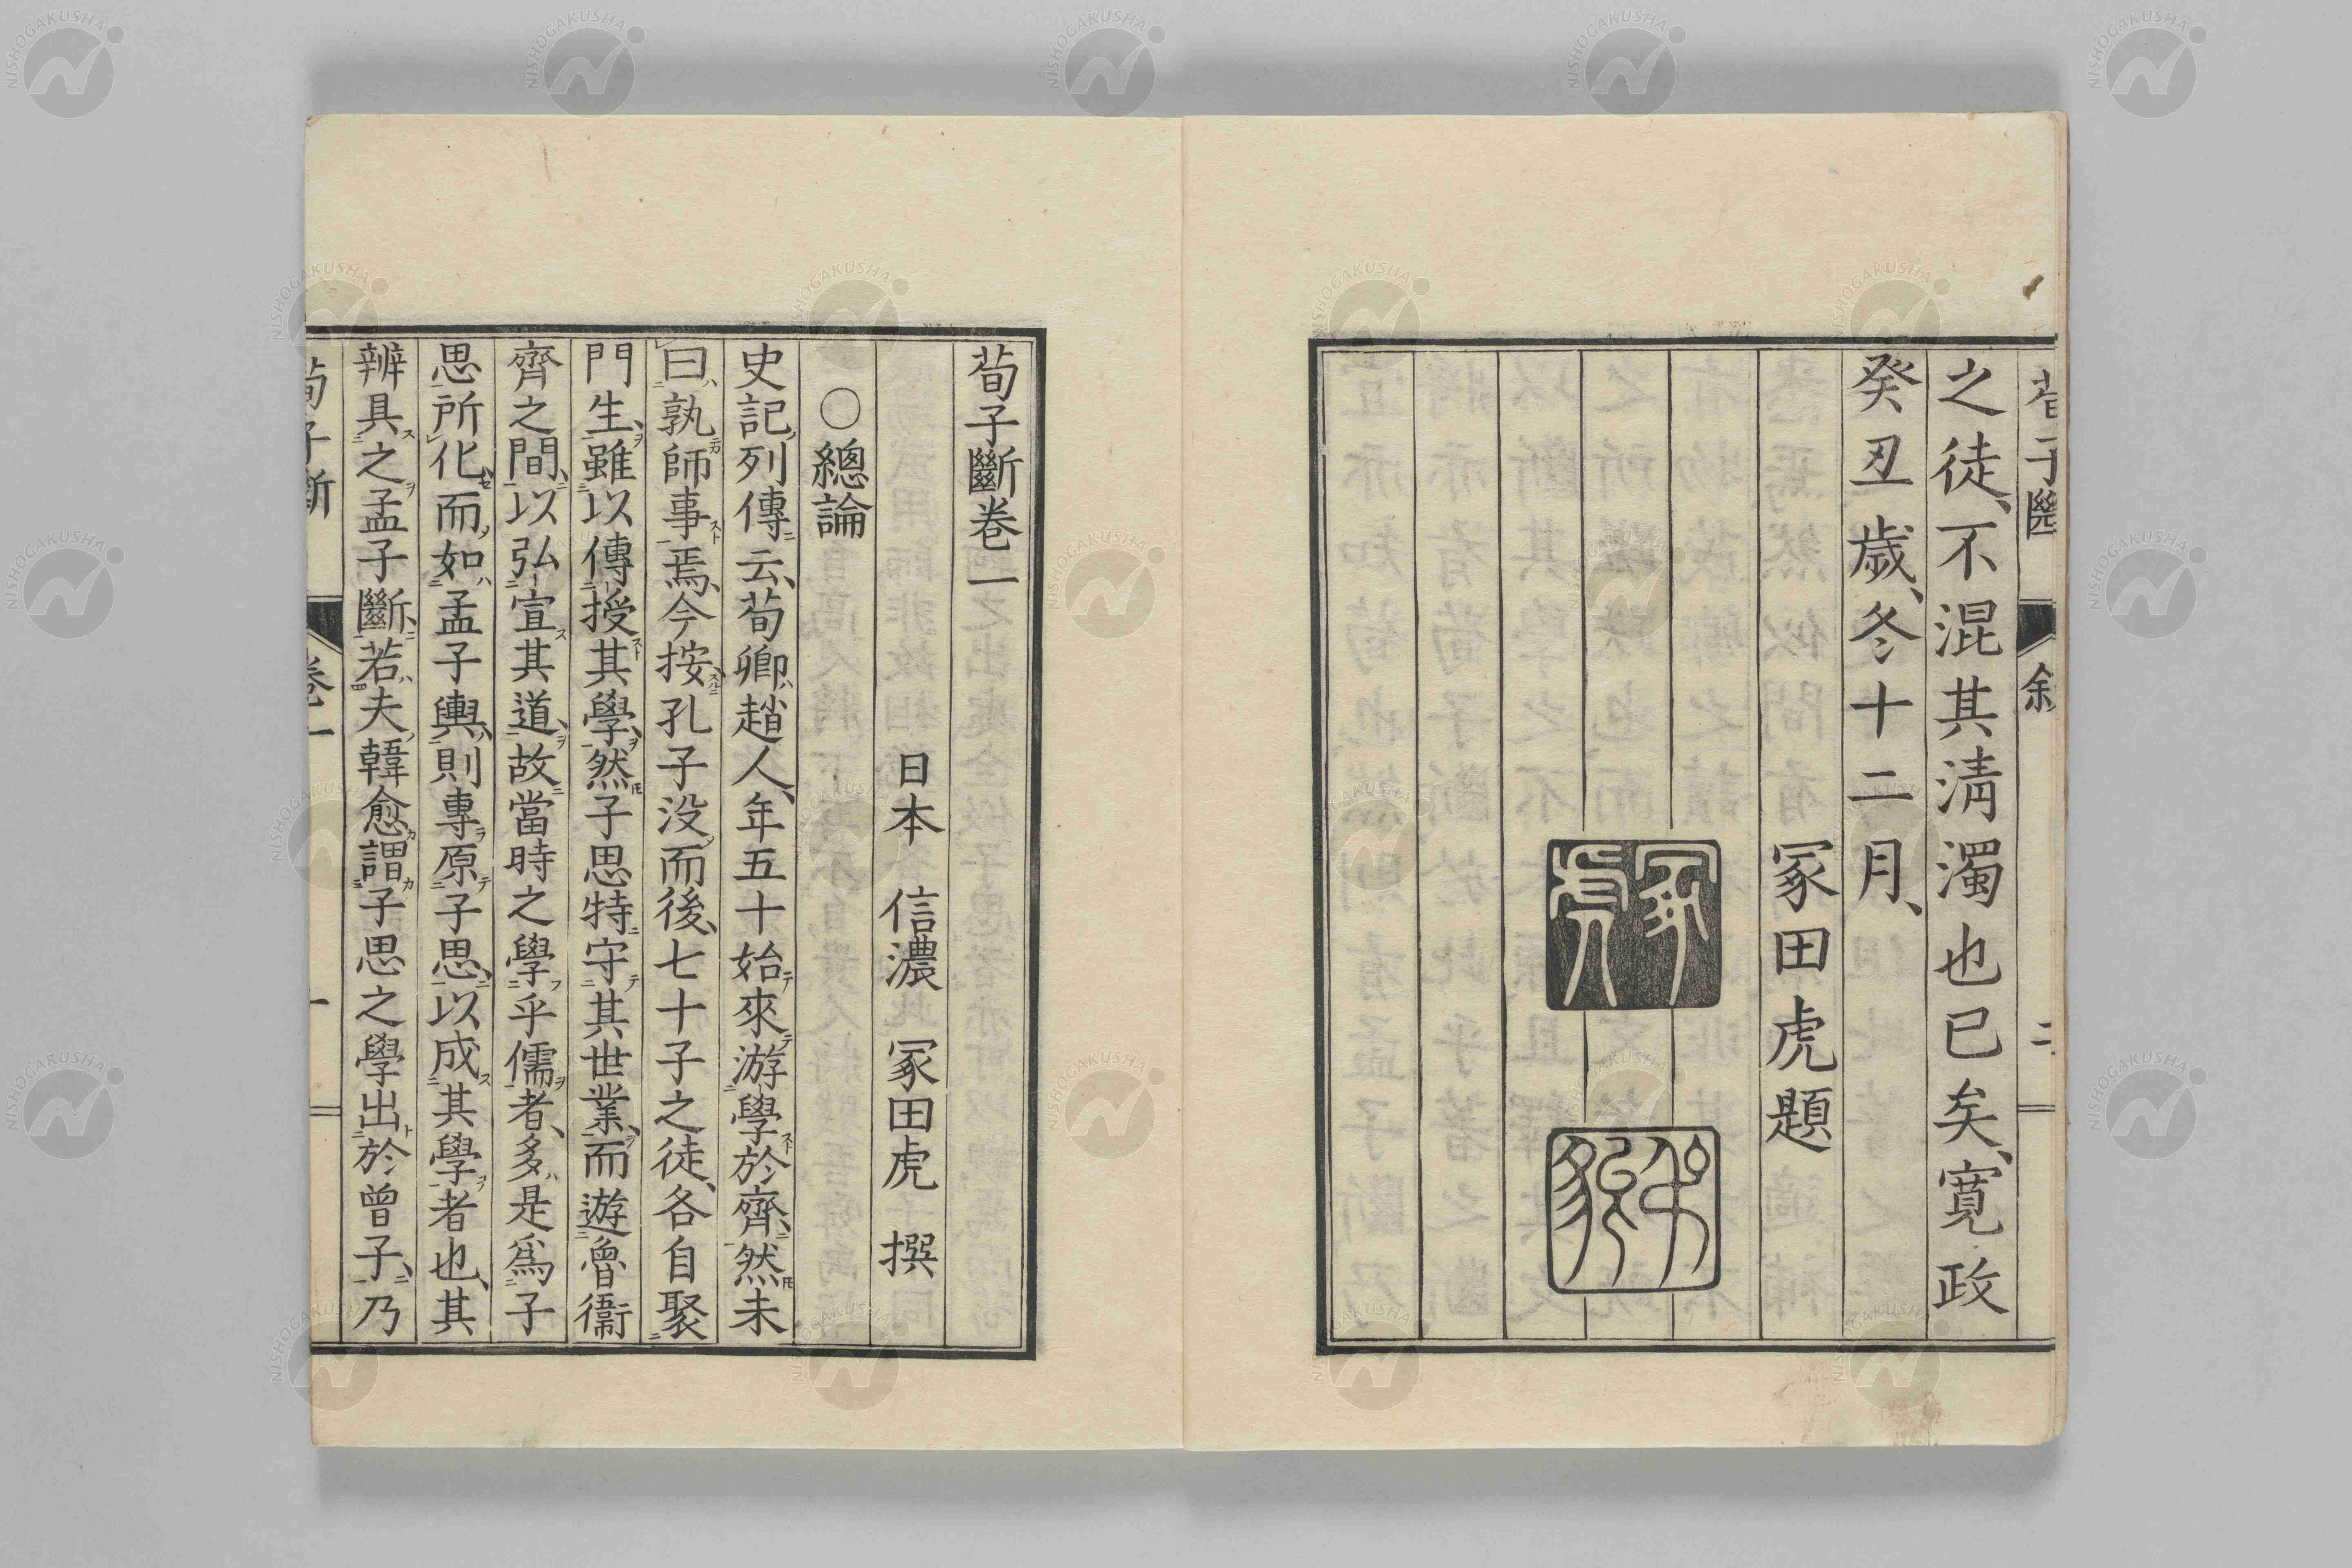 之徒、不混其淸濁也已矣、寬政
癸丑歲、冬十二月、
冢田虎題
荀子斷卷一
日本 信濃 冢田虎 撰
○總論
史記列傳云、荀卿趙人、年五十始來游學於齊、然未
曰孰師事焉、今按孔子没而後、七十子之徒、各自聚
門生、雖以傳授其學、然子思特守其世業、而遊魯衞
齊之間、以弘宣其道、故當時之學乎儒者、多是爲子
思所化、而如孟子輿、則專原子思、以成其學者也、其
辨具之孟子斷、若夫韓愈謂子思之學出於曾子、乃
NISHOGAKUSHA